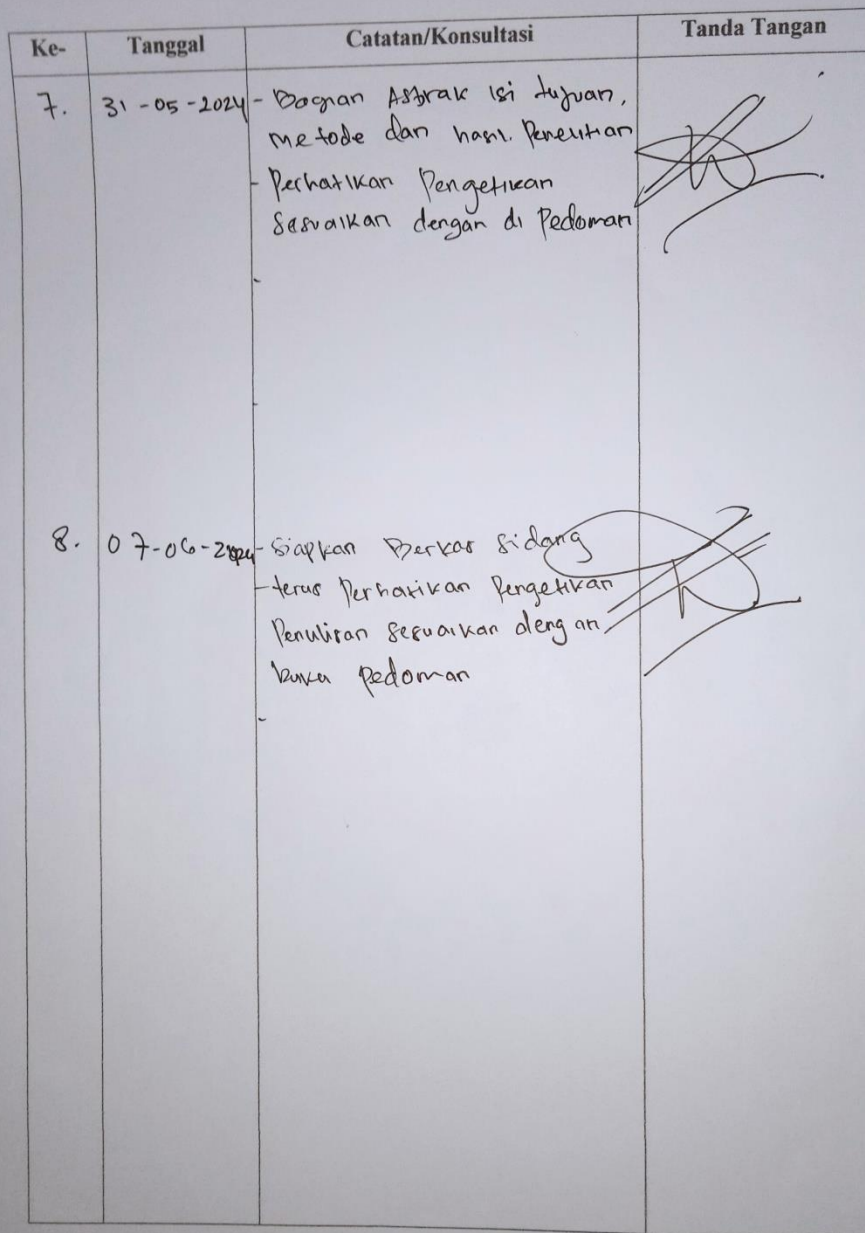 Ke- Tanggal Catatan/Konsultasi Tanda Tangan
7. 31-05-2024 - Bagian Astrak isi tujuan,
metode dan hasil Penelitian
- Perhatikan Pengetikan
Sesuaikan dengan di Pedoman
8. 07-06-2024 - Siapkan Berkas Sidang
- terus Perhatikan Pengetikan
Penulisan sesuaikan dengan
buku pedoman